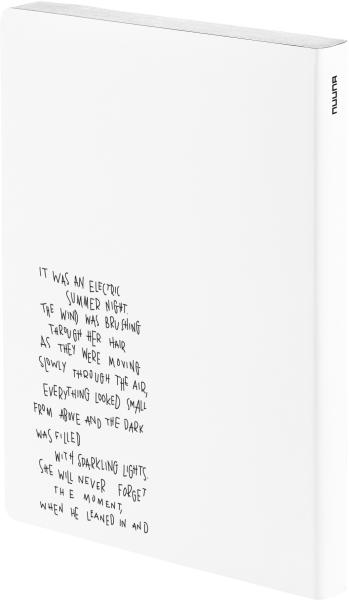 nuuna
IT WAS AN ELECTRIC
SUMMER NIGHT.
THE WIND WAS BRUSHING
THROUGH HER HAIR
AS THEY WERE MOVING
SLOWLY THROUGH THE AIR,
EVERYTHING LOOKED SMALL
FROM ABOVE AND THE DARK
WAS FILLED
WITH SPARKLING LIGHTS.
SHE WILL NEVER FORGET
THE MOMENT,
WHEN HE LEANED IN AND